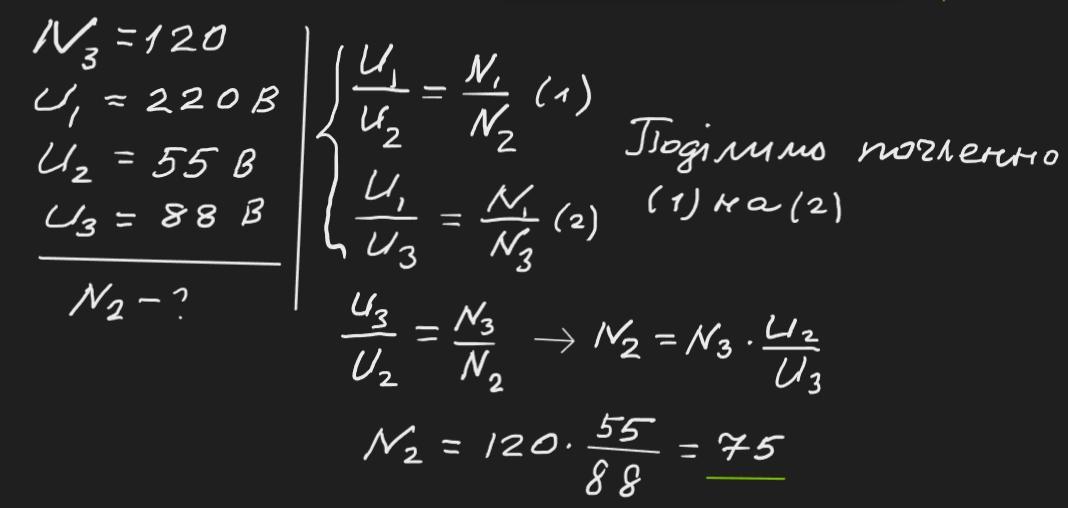 N₃ = 120
U₁ = 220 В
U₂ = 55 В
U₃ = 88 В
N₂ – ?
U₁/U₂ = N₁/N₂ (1)
U₁/U₃ = N₁/N₃ (2)
Поділимо почленно
(1) на (2)
U₃/U₂ = N₃/N₂ → N₂ = N₃ · U₂/U₃
N₂ = 120 · 55/88 = 75